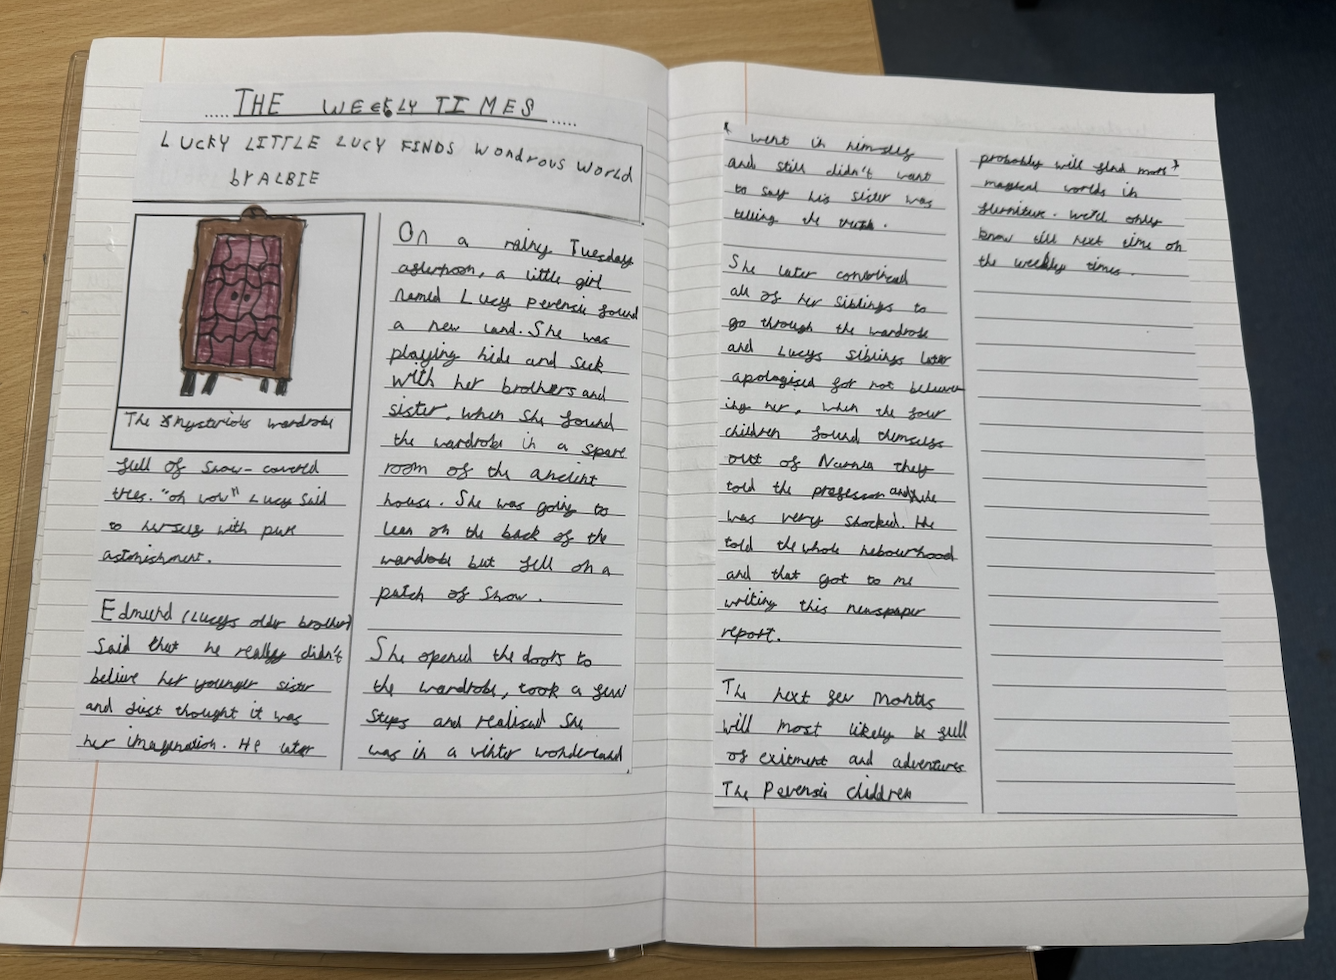 THE WEEKLY TIMES
LUCKY LITTLE LUCY FINDS wondrous world
by ALBIE
The mysterious wardrobe
On a rainy Tuesday
afternoon, a little girl
named Lucy Pevensie found
a new land. She was
playing hide and seek
with her brothers and
sister, when she found
the wardrobe in a spare
room of the ancient
house. She was going to
lean on the back of the
wardrobe but fell on a
patch of snow.
She opened the doors to
the wardrobe, took a few
steps and realised she
was in a winter wonderland
full of snow-covered
trees. "oh wow" Lucy said
to herself with pure
astonishment.
Edmund (Lucys older brother)
said that he really didn't
believe her younger sister
and just thought it was
her imagination. He later
went in himself
and still didn't want
to say his sister was
telling the truth.
She later convinced
all of her siblings to
go through the wardrobe
and Lucys siblings later
apologised for not believe
ing her, when the four
children found themselfs
out of Narnia they
told the professor and he
was very shocked. He
told the whole nebourhood
and that got to me
writing this newspaper
report.
The next few months
will most likely be full
of exicment and adventures
The Pevensie children
probably will find more
magical worlds in
furniture. we'll only
know till next time on
the weekly times.